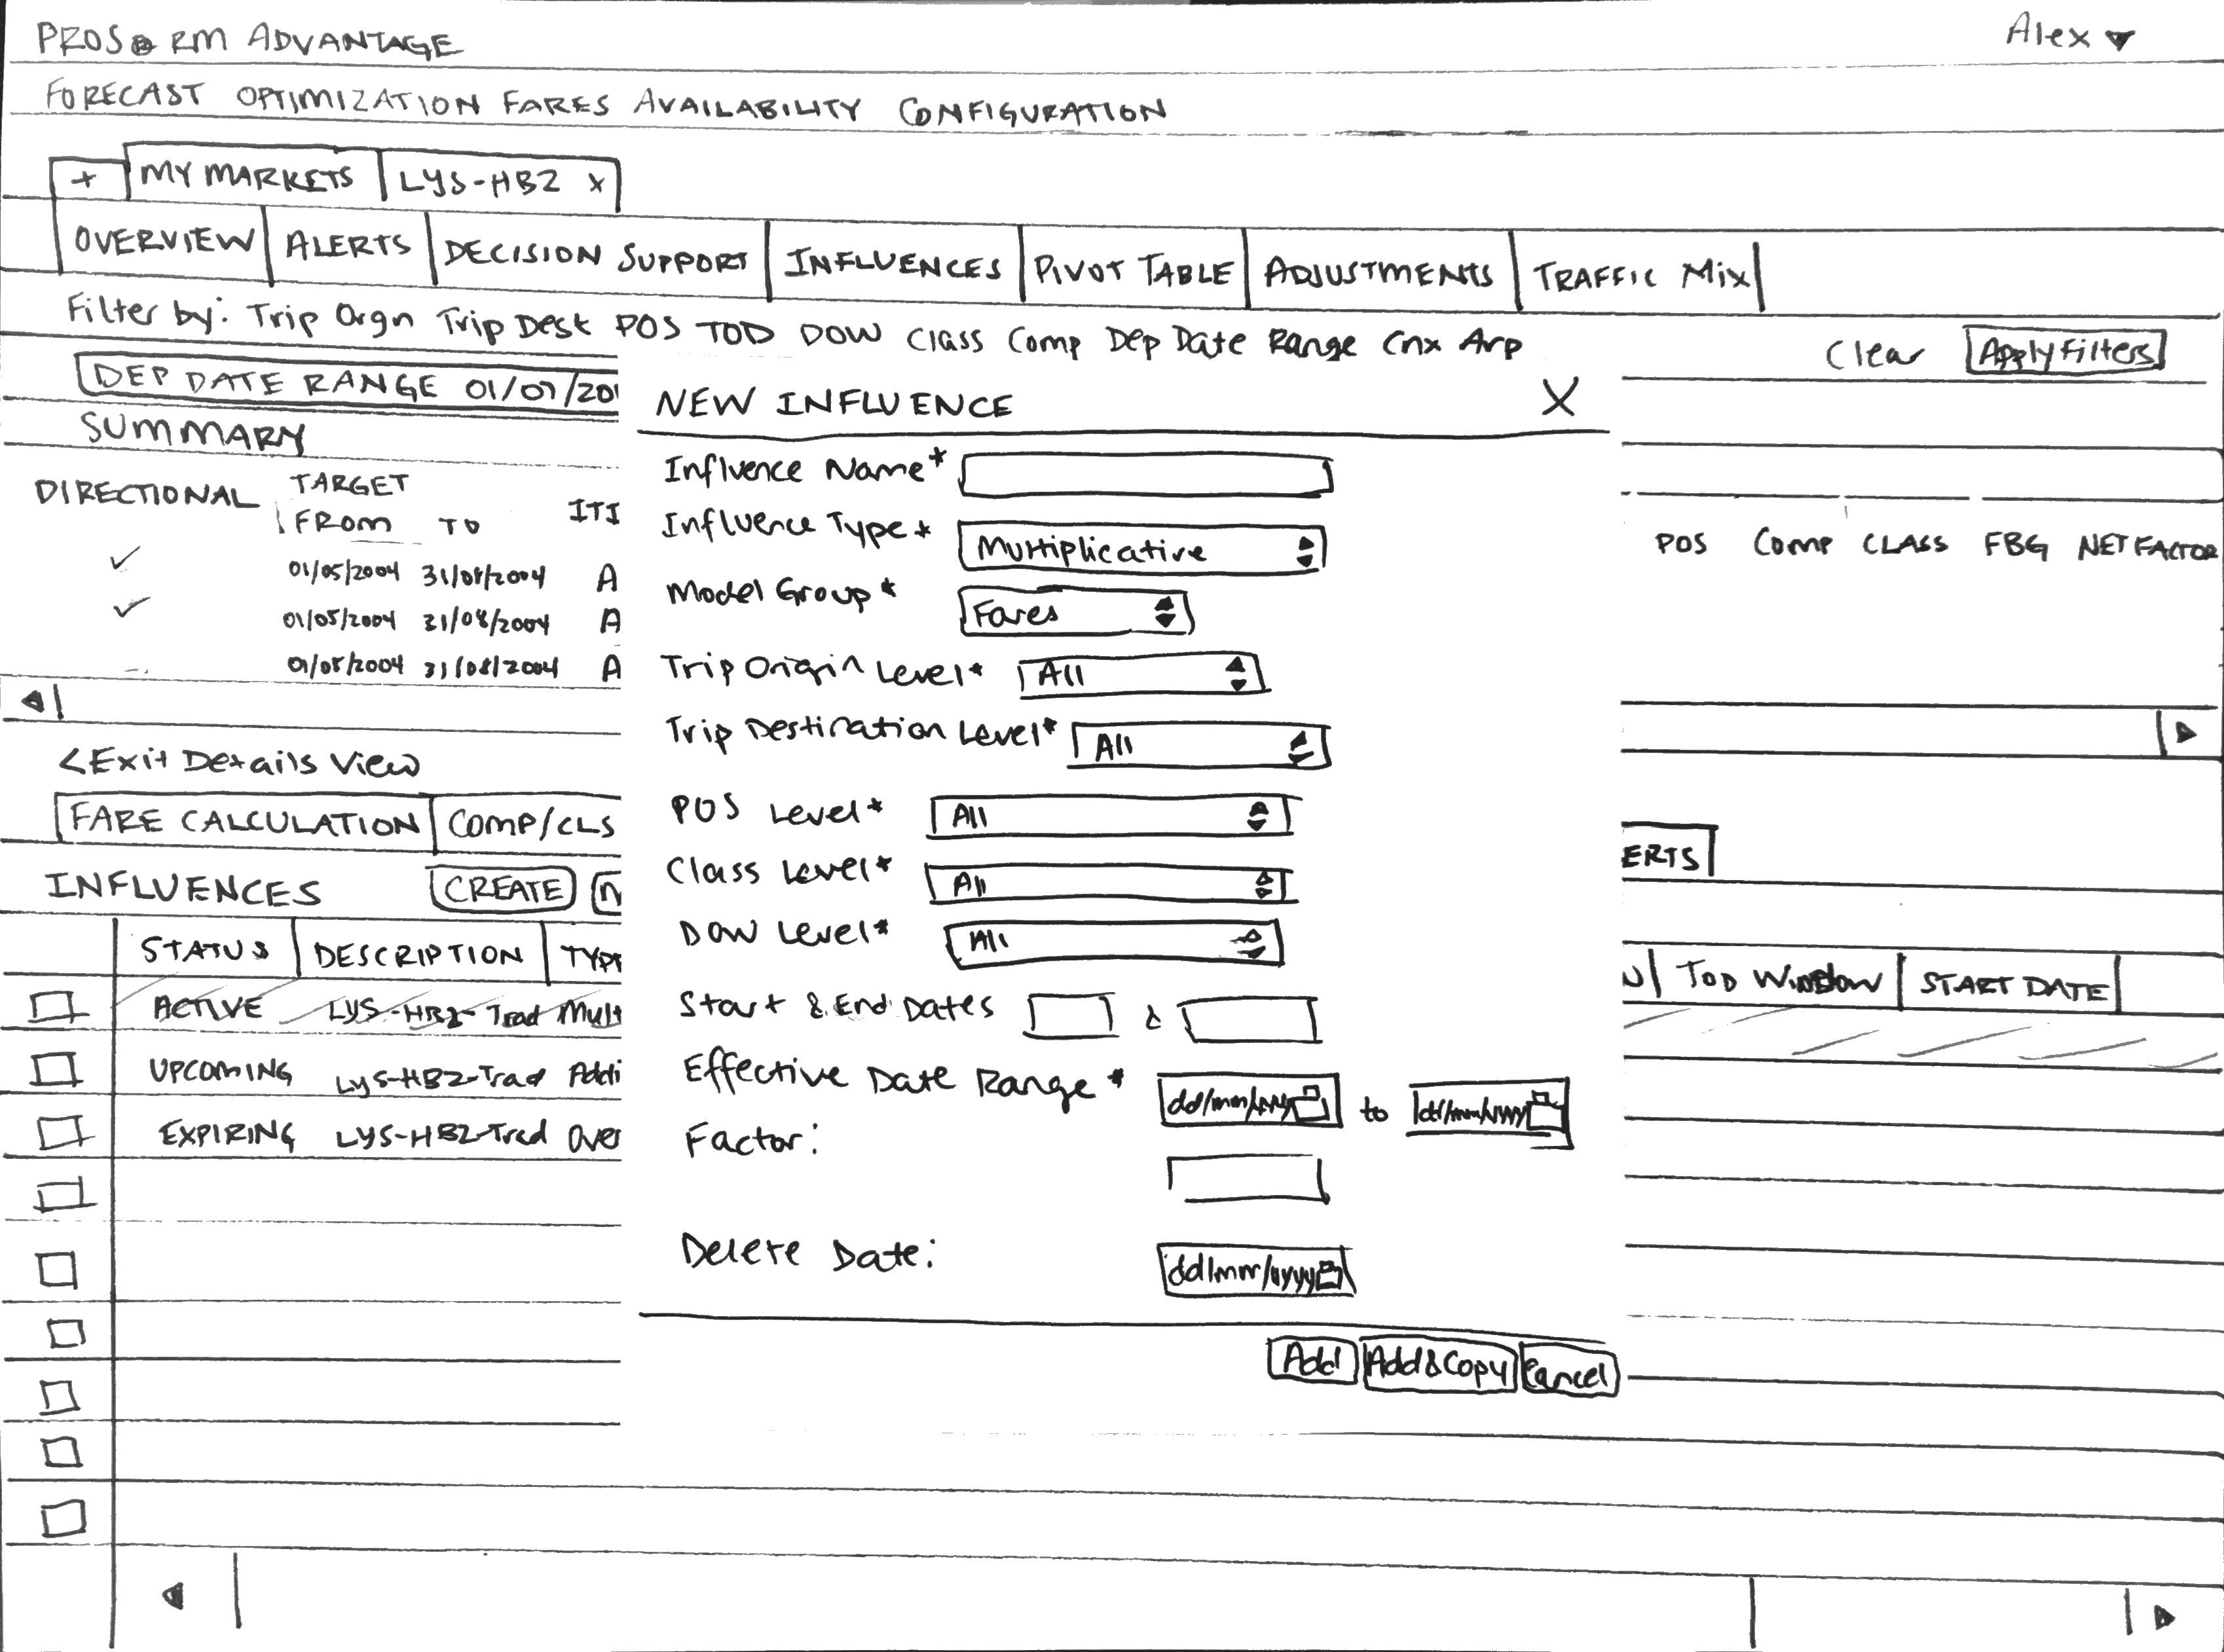 PROS RM ADVANTAGE
Alex
FORECAST OPTIMIZATION FARES AVAILABILITY CONFIGURATION
+ MY MARKETS LYS-HBZ x
OVERVIEW ALERTS DECISION SUPPORT INFLUENCES PIVOT TABLE ADJUSTMENTS TRAFFIC Mix
Filter by: Trip Orgn Trip Dest POS TOD DOW Class Comp Dep Date Range Cnx Arp
Clear Apply Filters
DEP DATE RANGE 01/07/201
SUMMARY
DIRECTIONAL TARGET
FROM TO ITI
POS Comp CLASS FBG NET FACTOR
01/05/2004 31/08/2004 A
01/05/2004 31/08/2004 A
01/05/2004 31/08/2004 A
<Exit Details View
FARE CALCULATION COMP/CLS
ERTS
INFLUENCES CREATE
STATUS DESCRIPTION TYPE
TOD Window START DATE
ACTIVE LYS-HBZ-Trad Mult
UPCOMING LYS-HBZ-Trad Addi
EXPIRING LYS-HBZ-Trad Over
NEW INFLUENCE X
Influence Name*
Influence Type* Multiplicative
Model Group* Fares
Trip Origin Level* All
Trip Destination Level* All
POS Level* All
Class Level* All
DOW Level* All
Start & End Dates &
Effective Date Range* dd/mm/yyyy to dd/mm/yyyy
Factor:
Delete Date: dd/mm/yyyy
Add Add&Copy Cancel